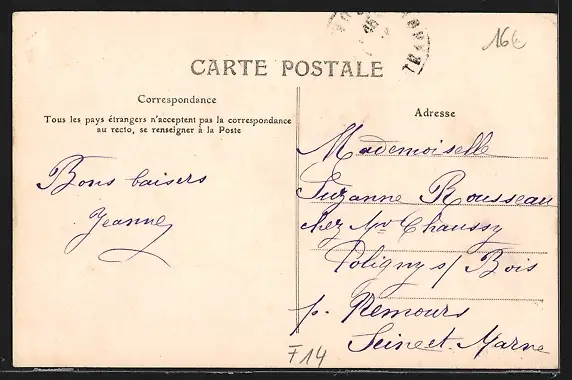 16€
CARTE POSTALE
Correspondance
Tous les pays étrangers n'acceptent pas la correspondance
au recto, se renseigner à la Poste
Bons baisers
Jeanne
Adresse
Mademoiselle
Suzanne Rousseau
chez Mr Chaussy
Poligny s/ Bois
p. Nemours
Seine et Marne
F14